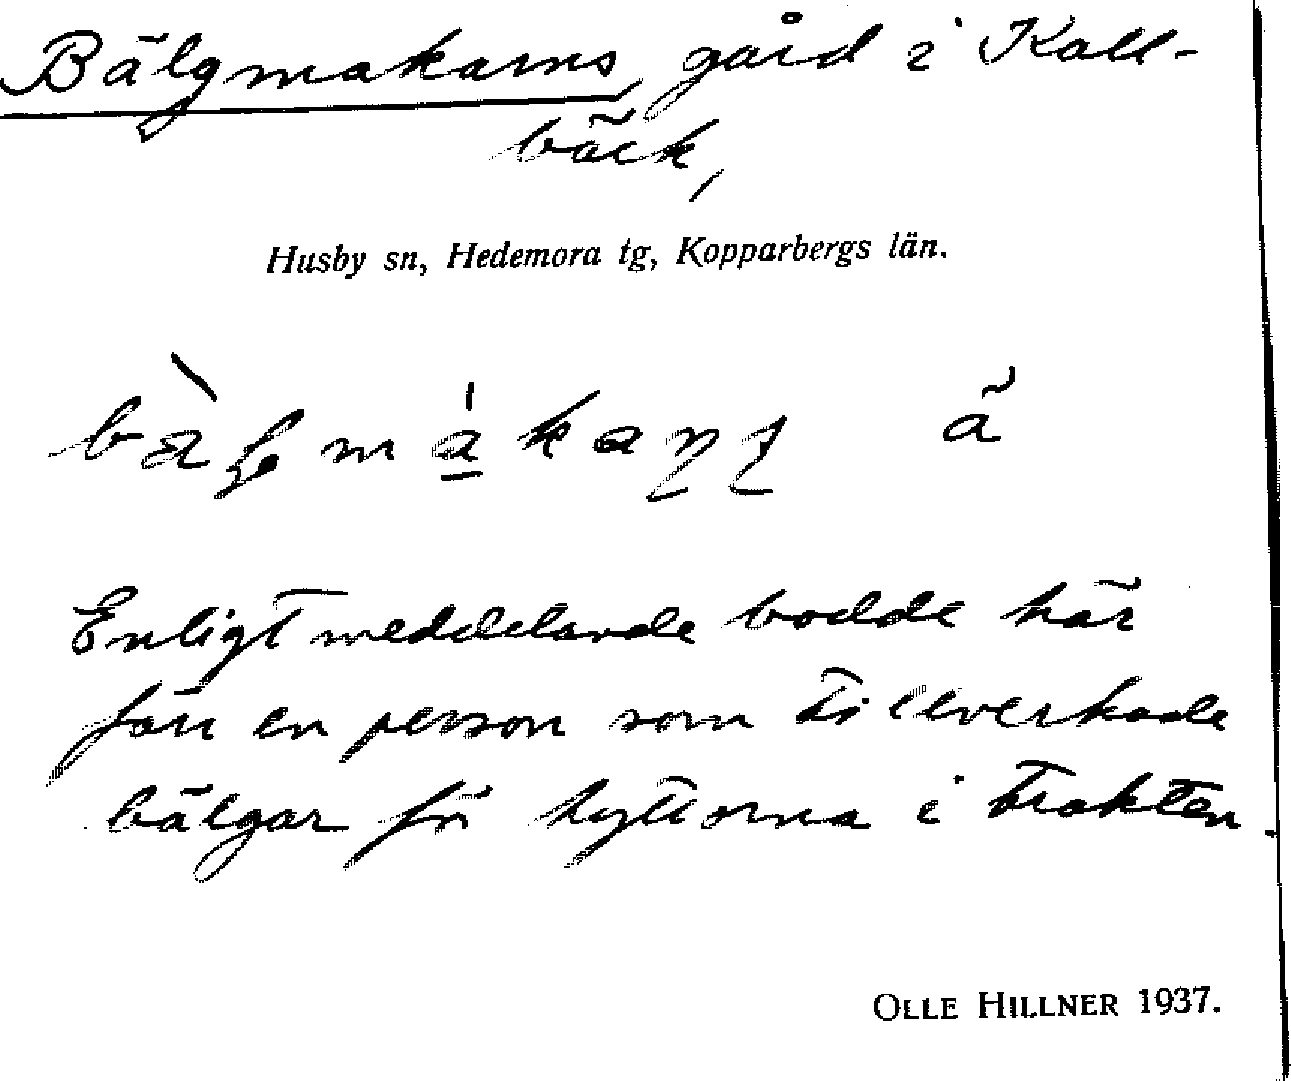 Bälgmakarns, gård i Kall-
bäck,
Husby sn, Hedemora tg, Kopparbergs län.
Enligt meddelande bodde här
förr en person som tillverkade
bälgar för hyttorna i trakten.
OLLE HILLNER 1937.